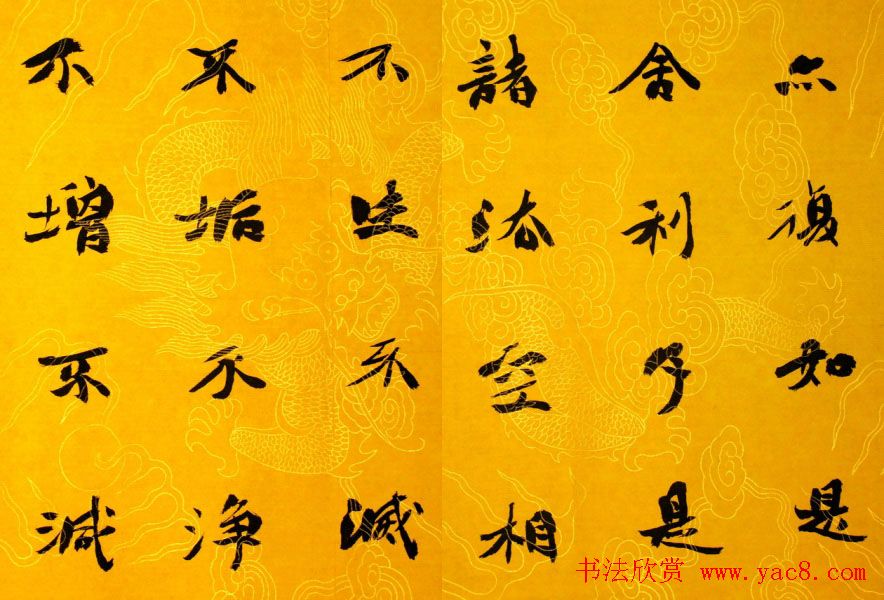 亦復如是
舍利子是
諸法空相
不生不滅
不垢不淨
不增不減
书法欣赏 www.yac8.com